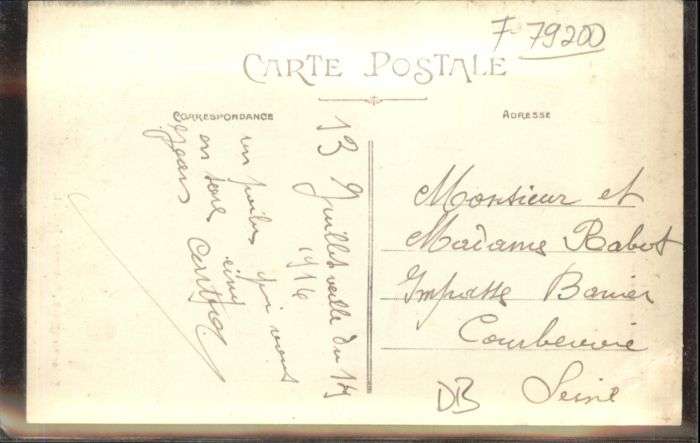 F 79200
CARTE POSTALE
CORRESPONDANCE
ADRESSE
13 Juillet veille du 14
1916
un poilu qui vous
en
Monsieur et
Madame Rabot
Impasse Barrier
Courbevoie
Seine
DB